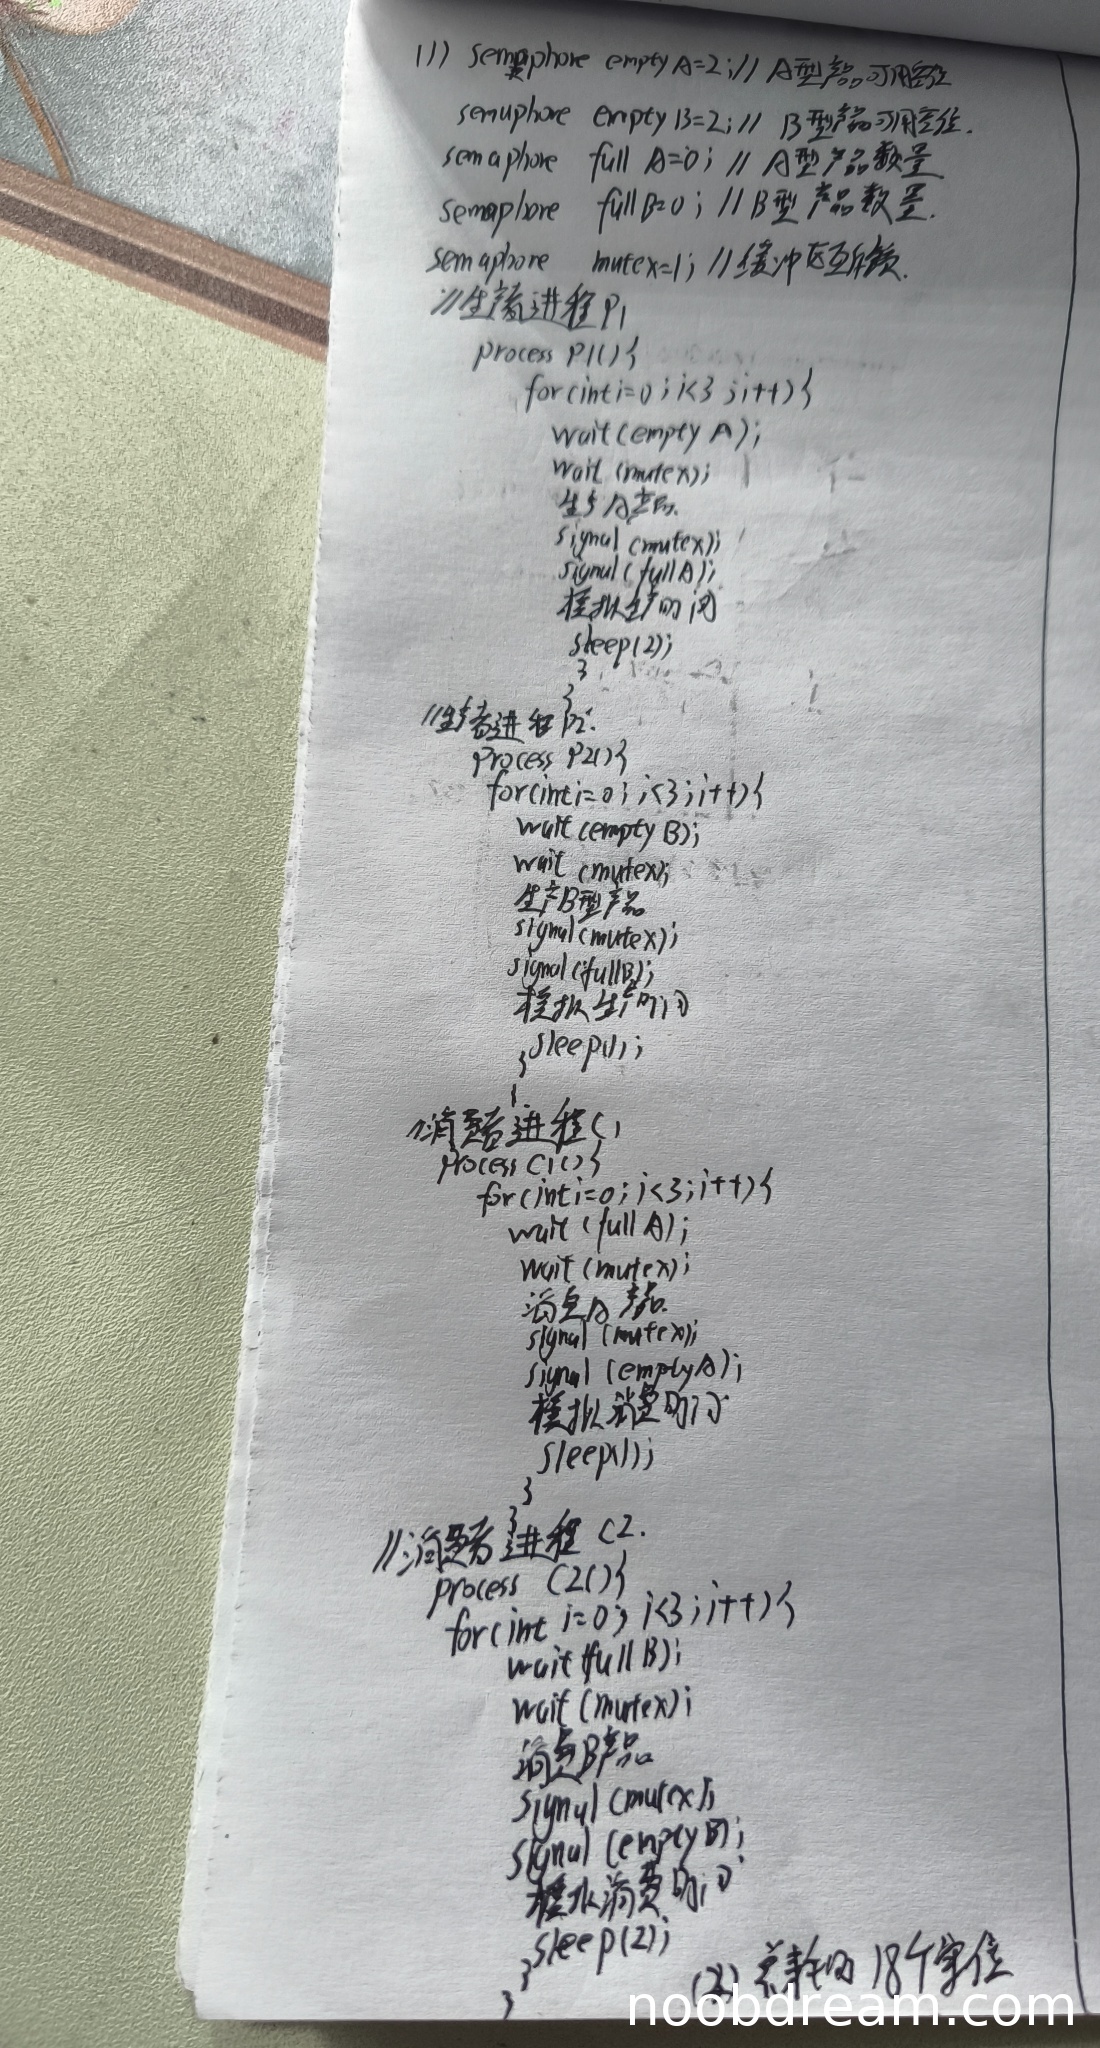 (1) semaphore emptyA=2; // A型产品可用空位
semaphore emptyB=2; // B型产品可用空位.
semaphore fullA=0; // A型产品数量
semaphore fullB=0; // B型产品数量.
semaphore mutex=1; // 缓冲区互斥锁.
//生产者进程P1
process P1(){
for(int i=0; i<3; i++){
wait(emptyA);
wait(mutex);
生产A产品.
signal(mutex);
signal(fullA);
模拟生产时间
sleep(2);
}
}
//生产者进程P2.
process P2(){
for(int i=0; i<3; i++){
wait(emptyB);
wait(mutex);
生产B型产品
signal(mutex);
signal(fullB);
模拟生产时间
sleep(1);
}
}
//消费者进程C1
process C1(){
for(int i=0; i<3; i++){
wait(fullA);
wait(mutex);
消费A产品.
signal(mutex);
signal(emptyA);
模拟消费时间
sleep(1);
}
}
//消费者进程C2.
process C2(){
for(int i=0; i<3; i++){
wait(fullB);
wait(mutex);
消费B产品
signal(mutex);
signal(emptyB);
模拟消费时间
sleep(2);
}
}
(2) 总耗时 18个单位
noobdream.com